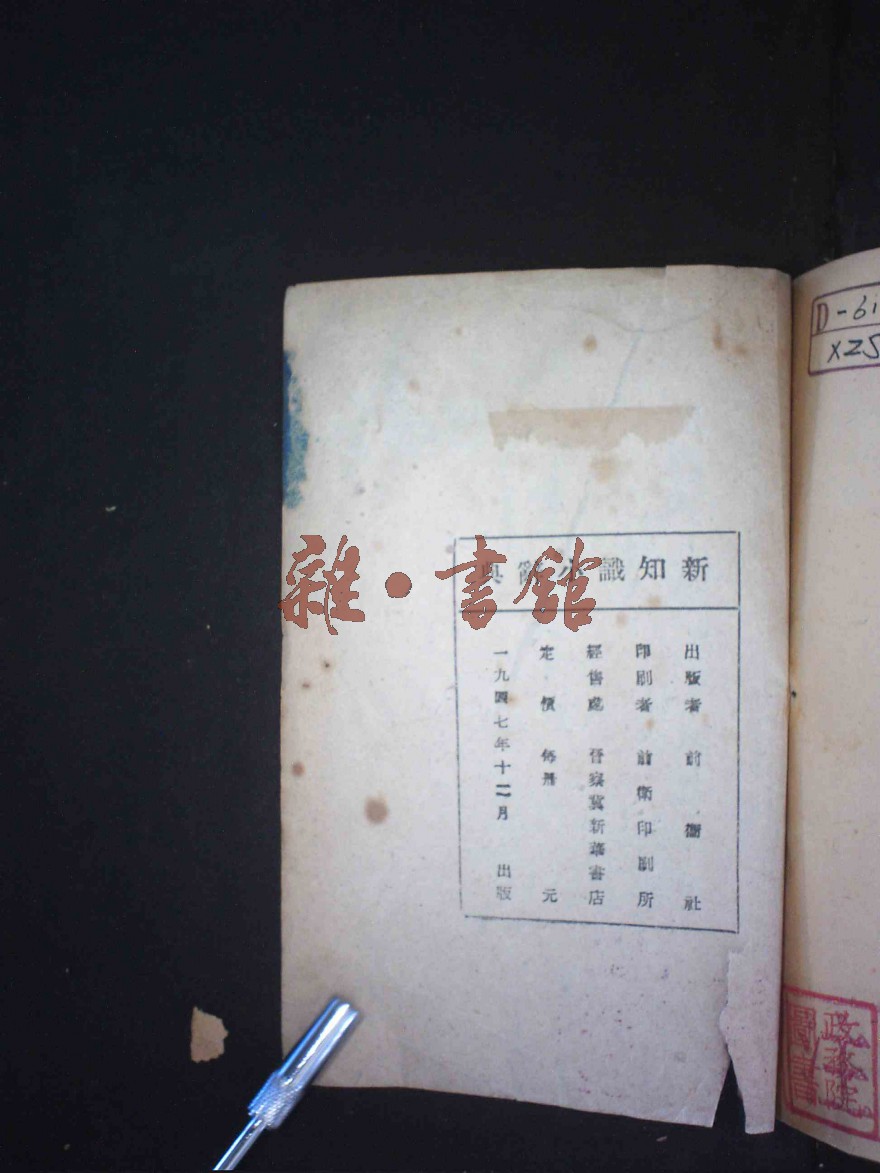 新知識小辭典
出版者 前衛社
印刷者 前衛印刷所
經售處 晉察冀新華書店
定價 每冊 元
一九四七年十二月 出版
雜·書館
D-61
XZS
政務院
圖書